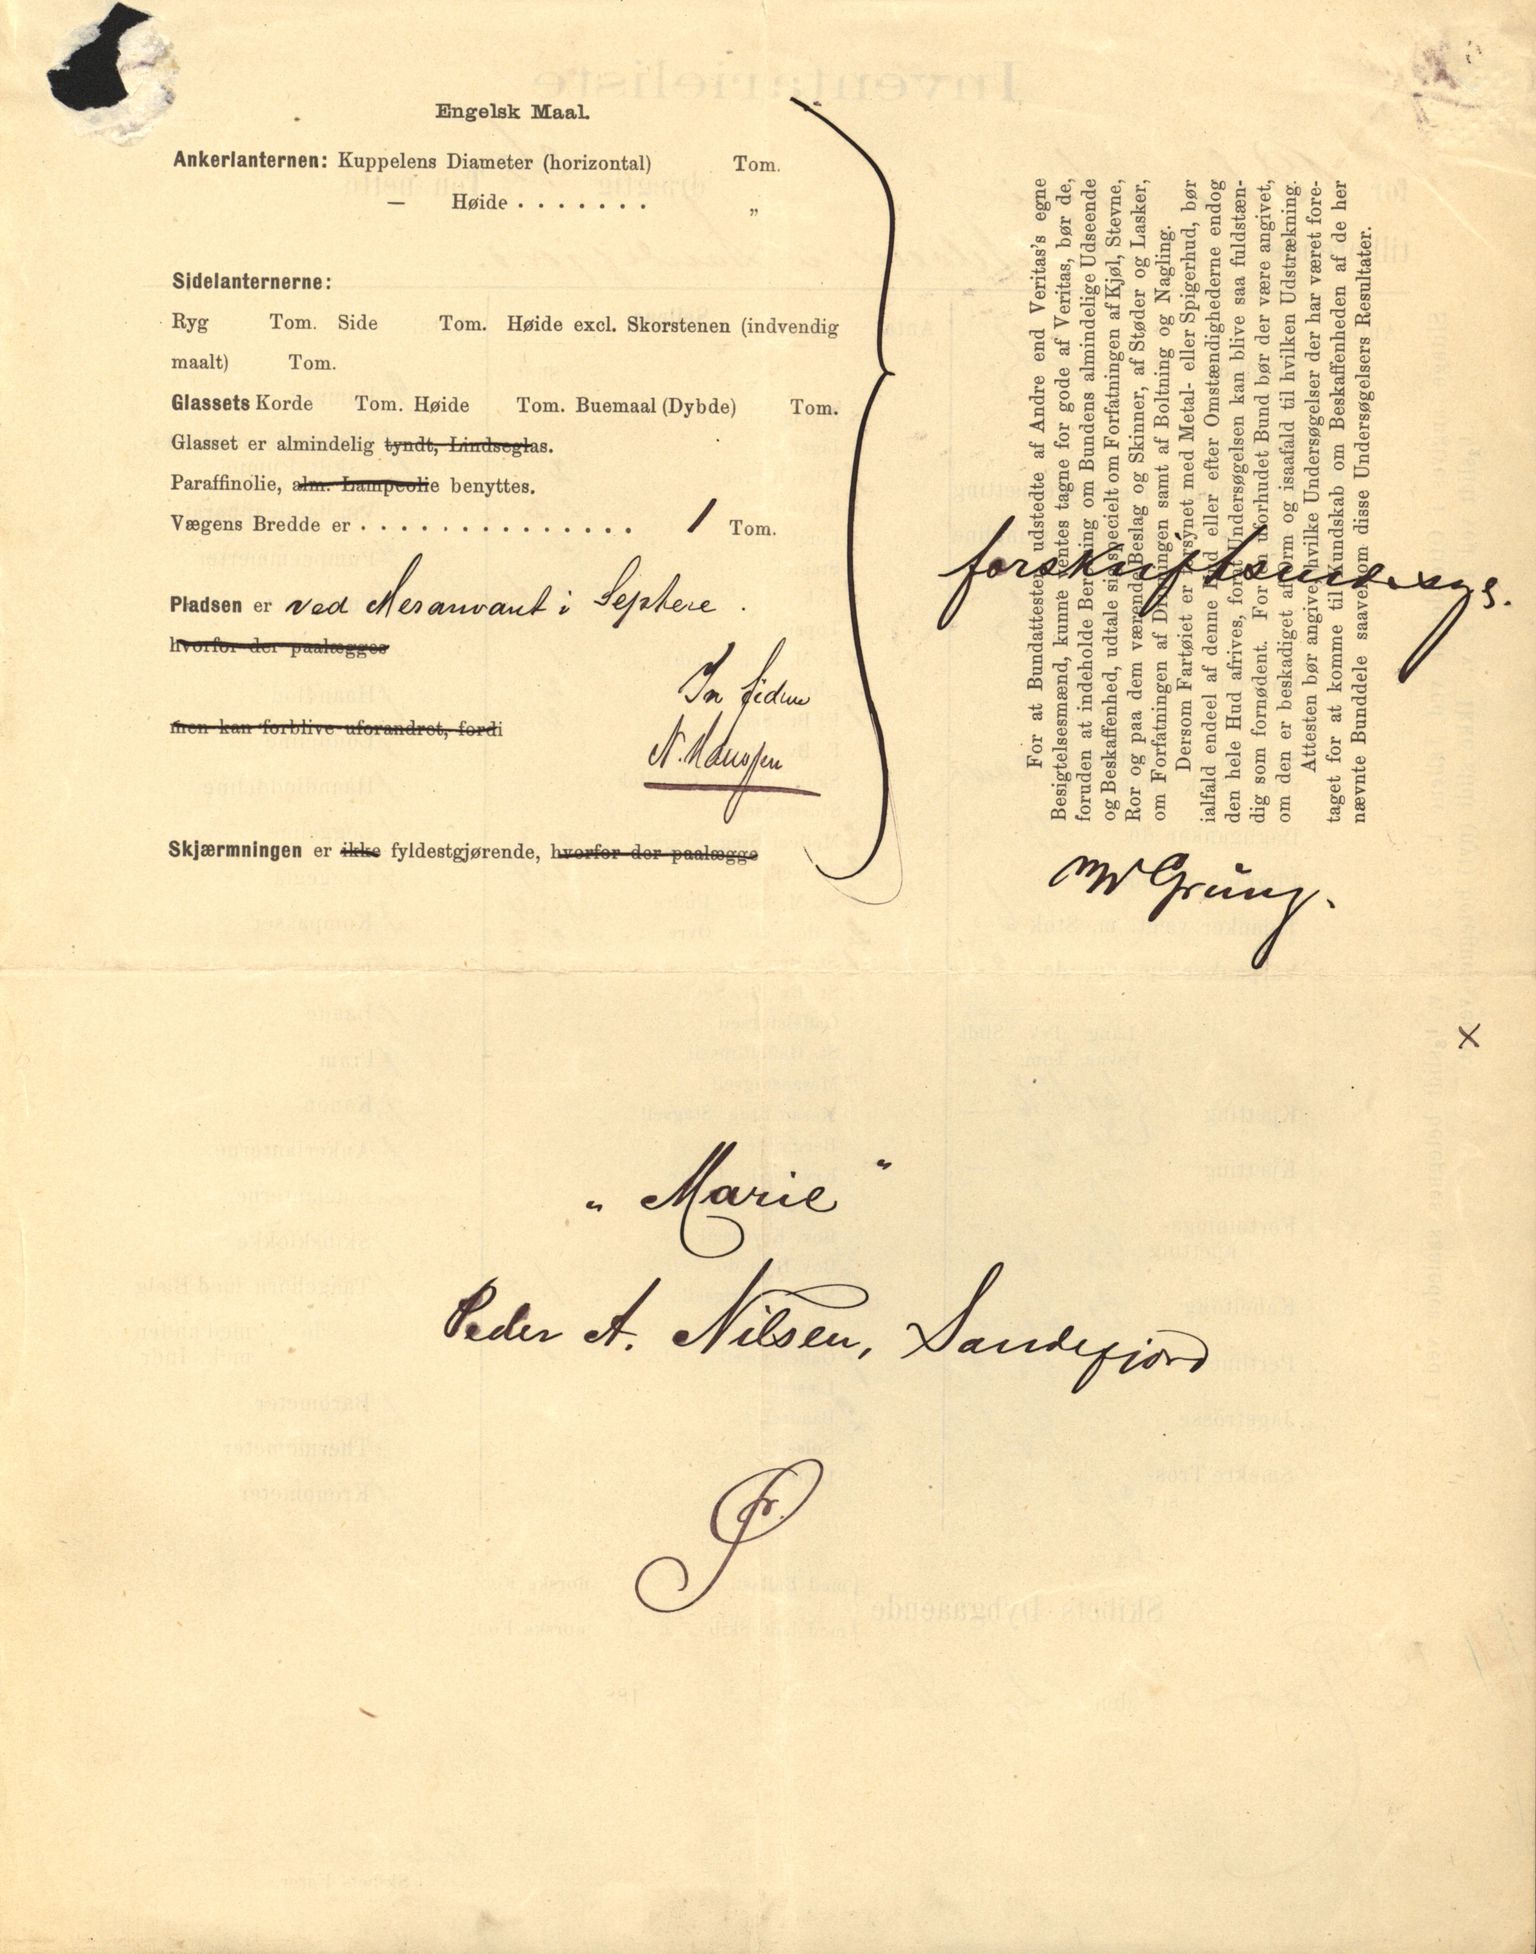 Engelsk Maal.
Ankerlanternen: Kuppelens Diameter (horizontal) Tom.
— Høide . . . . . . . „
Sidelanternerne:
Ryg Tom. Side Tom. Høide excl. Skorstenen (indvendig
maalt) Tom.
Glassets Korde Tom. Høide Tom. Buemaal (Dybde) Tom.
Glasset er almindelig tyndt, Lindseglas.
Paraffinolie, alm. Lampeolie benyttes.
Vægens Bredde er . . . . . . . . . . . . . . 1 Tom.
Pladsen er ved Mesanvant i
hvorfor der paalægges
men kan forblive uforandret, fordi
N. Hanssen
Skjærmningen er ikke fyldestgjørende, hvorfor der paalægge
For at Bundattester, udstedte af Andre end Veritas's egne
Besigtelsesmænd, kunne ventes tagne for gode af Veritas, bør de,
foruden at indeholde Beretning om Bundens almindelige Udseende
og Beskaffenhed, udtale sig specielt om Forfatningen af Kjøl, Stevne,
Ror og paa dem værende Beslag og Skinner, af Støder og Lasker,
om Forfatningen af Drivningen samt af Boltning og Nagling.
Dersom Fartøiet er forsynet med Metal- eller Spigerhud, bør
ialfald endeel af denne Hud eller efter Omstændighederne endog
den hele Hud afrives, forat Undersøgelsen kan blive saa fuldstæn-
dig som fornødent. For en uforhudet Bund bør der være angivet,
om den er beskadiget af Orm og isaafald til hvilken Udstrækning.
Attesten bør angive, hvilke Undersøgelser der har været fore-
taget for at komme til Kundskab om Beskaffenheden af de her
nævnte Bunddele saavelsom disse Undersøgelsers Resultater.
„ Marie "
Peder A. Nilsen, Sandefjord